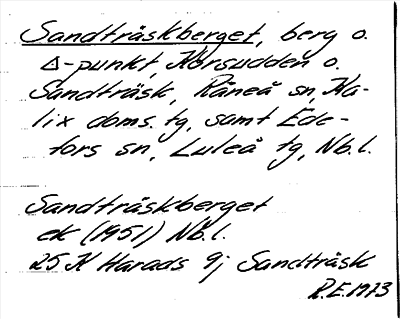 Sandträskberget, berg o.
Δ-punkt, Korsudden o.
Sandträsk, Råneå sn, Ka-
lix doms. tg, samt Ede-
fors sn, Luleå tg, Nb.l.
Sandträskberget
ek (1951) Nb.l.
25 K Harads 9j Sandträsk
R.E. 1973